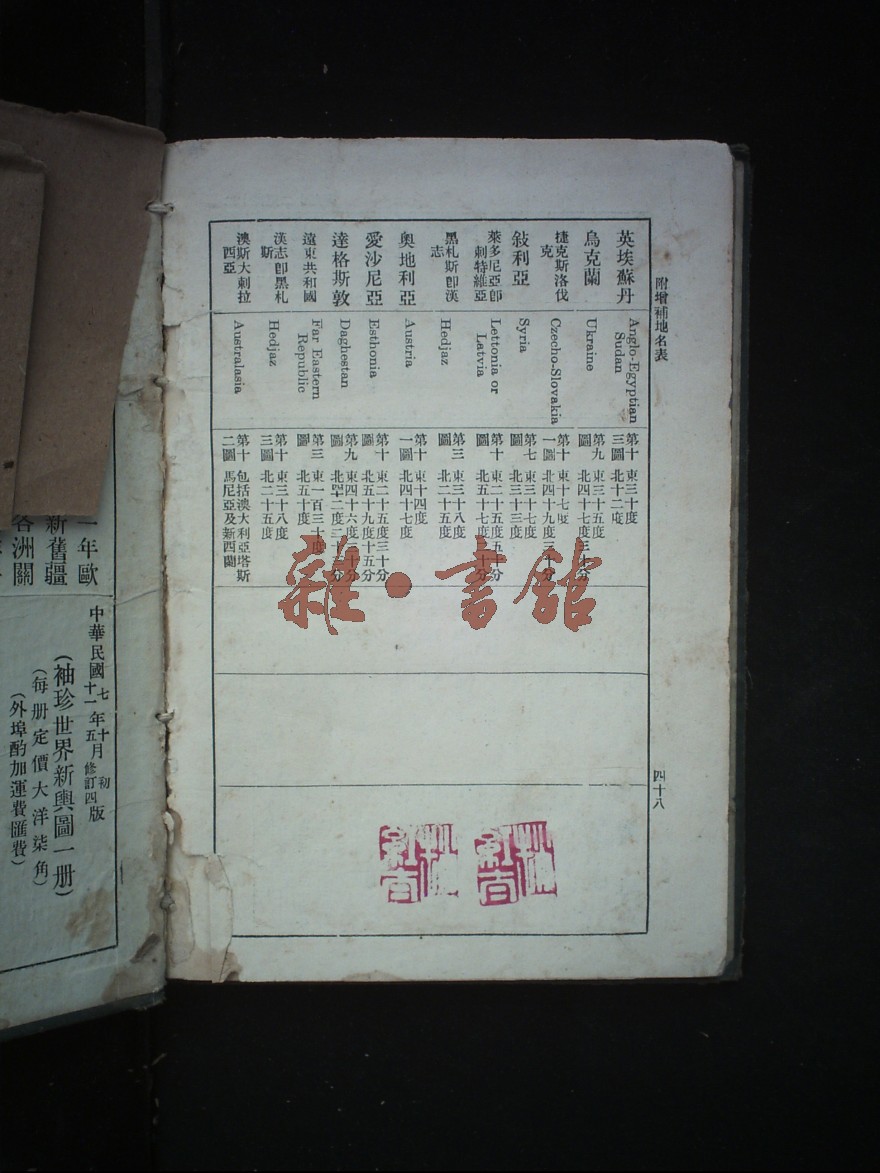 附增補地名表
英埃蘇丹
Anglo-Egyptian
Sudan
第十三圖
東三十度
北十二度
烏克蘭
Ukraine
第九圖
東三十五度
北四十七度三十分
捷克斯洛伐克
Czecho-Slovakia
第十一圖
東十七度
北四十九度三十分
敍利亞
Syria
第七圖
東三十七度
北三十三度
萊多尼亞卽
剌特維亞
Lettonia or
Latvia
第十圖
東二十五度五十分
北五十七度 十分
黑札斯卽漢志
Hedjaz
第三圖
東三十八度
北二十五度
奥地利亞
Austria
第十一圖
東十四度
北四十七度
愛沙尼亞
Esthonia
第十圖
東二十五度三十分
北五十九度十五分
達格斯敦
Daghestan
第九圖
東四十六度三十分
北四十二度二十五分
遠東共和國
Far Eastern
Republic
第三圖
東一百三十度
北五十度
漢志卽黑札斯
Hedjaz
第十三圖
東三十八度
北二十五度
澳斯大剌拉西亞
Australasia
第十二圖
包括澳大利亞塔斯
馬尼亞及新西蘭
四十八
雜·書舘
一年歐
新舊疆
各洲關
中華民國七年十月初版
十一年五月修訂四版
(袖珍世界新輿圖一册)
(每册定價大洋柒角)
(外埠酌加運費匯費)